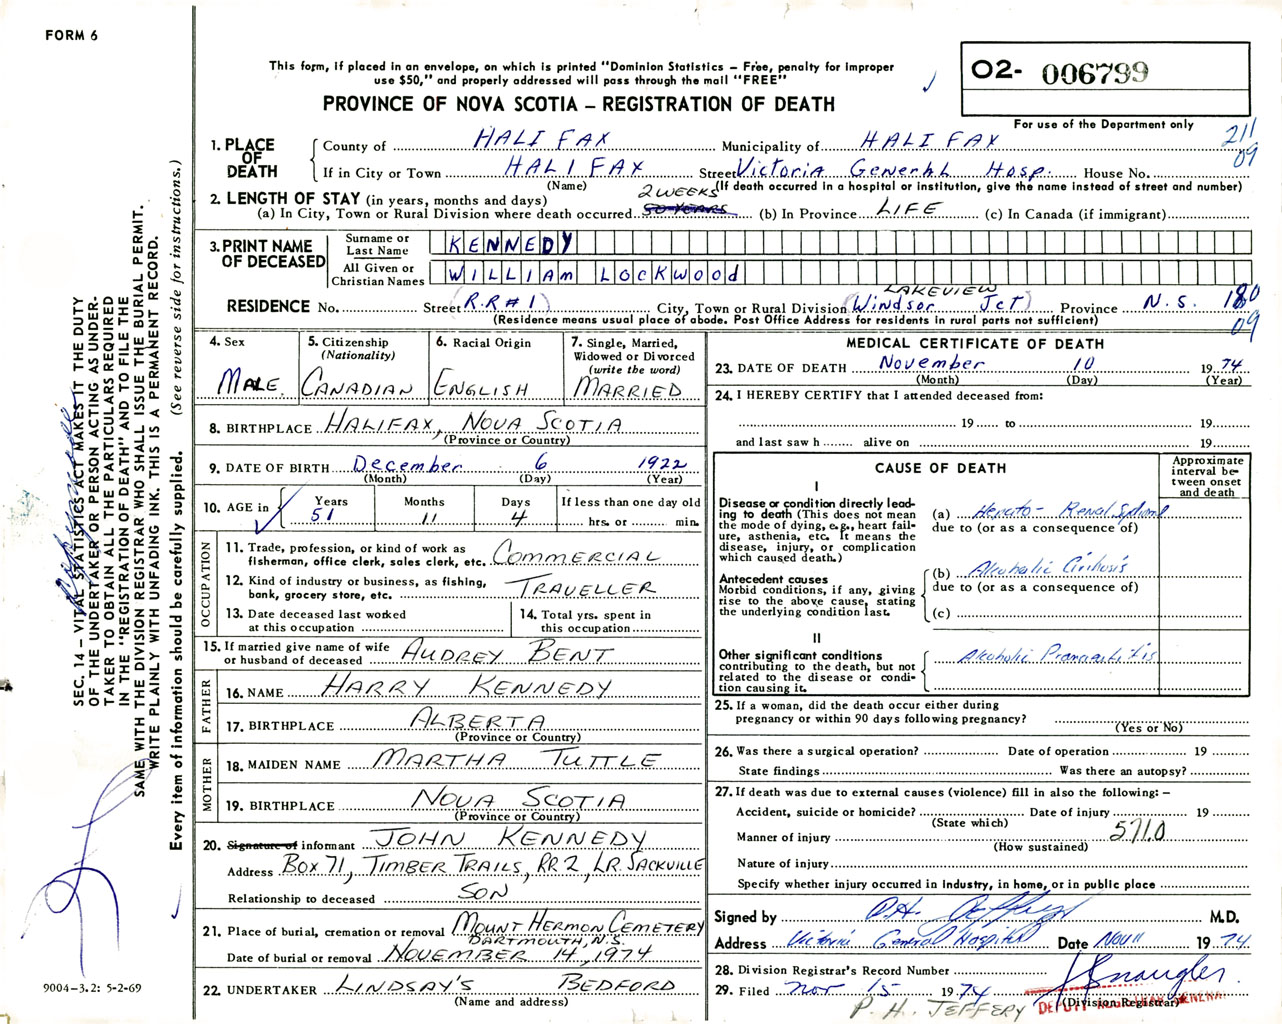 FORM 6
This form, if placed in an envelope, on which is printed "Dominion Statistics – Free, penalty for improper
use $50," and properly addressed will pass through the mail "FREE"
PROVINCE OF NOVA SCOTIA – REGISTRATION OF DEATH
02- 006799
For use of the Department only
211
09
1. PLACE OF DEATH
County of HALIFAX Municipality of HALIFAX
If in City or Town HALIFAX Street Victoria General Hosp. House No.
(Name) (If death occurred in a hospital or institution, give the name instead of street and number)
2. LENGTH OF STAY (in years, months and days)
2 WEEKS
(a) In City, Town or Rural Division where death occurred 50 YEARS (b) In Province LIFE (c) In Canada (if immigrant)
3. PRINT NAME OF DECEASED
Surname or Last Name KENNEDY
All Given or Christian Names WILLIAM LOCKWOOD
LAKEVIEW
RESIDENCE No. Street (R.R#1) City, Town or Rural Division (Windsor Jct) Province N.S. 180
09
(Residence means usual place of abode. Post Office Address for residents in rural parts not sufficient)
4. Sex
MALE.
5. Citizenship
(Nationality)
CANADIAN
6. Racial Origin
ENGLISH
7. Single, Married,
Widowed or Divorced
(write the word)
MARRIED
8. BIRTHPLACE HALIFAX, NOVA SCOTIA
(Province or Country)
9. DATE OF BIRTH December 6 1922
(Month) (Day) (Year)
10. AGE in
Years Months Days If less than one day old
51 11 4 hrs. or min.
OCCUPATION
11. Trade, profession, or kind of work as
fisherman, office clerk, sales clerk, etc. COMMERCIAL
12. Kind of industry or business, as fishing,
bank, grocery store, etc. TRAVELLER
13. Date deceased last worked
at this occupation
14. Total yrs. spent in
this occupation
15. If married give name of wife
or husband of deceased AUDREY BENT
FATHER
16. NAME HARRY KENNEDY
17. BIRTHPLACE ALBERTA
(Province or Country)
MOTHER
18. MAIDEN NAME MARTHA TUTTLE
19. BIRTHPLACE NOVA SCOTIA
(Province or Country)
20. Signature of informant JOHN KENNEDY
Address BOX 71, TIMBER TRAILS, RR2, LR. SACKVILLE
Relationship to deceased SON
21. Place of burial, cremation or removal MOUNT HERMON CEMETERY
DARTMOUTH, N.S.
Date of burial or removal NOVEMBER 14, 1974
22. UNDERTAKER LINDSAY'S BEDFORD
(Name and address)
MEDICAL CERTIFICATE OF DEATH
23. DATE OF DEATH November 10 1974
(Month) (Day) (Year)
24. I HEREBY CERTIFY that I attended deceased from:
19 to 19
and last saw h alive on 19
CAUSE OF DEATH
Approximate
interval be-
tween onset
and death
I
Disease or condition directly lead-
ing to death (This does not mean
the mode of dying, e.g., heart fail-
ure, asthenia, etc. It means the
disease, injury, or complication
which caused death.)
(a) Hepato- Renal
due to (or as a consequence of)
Antecedent causes
Morbid conditions, if any, giving
rise to the above cause, stating
the underlying condition last.
(b) Alcoholic Cirrhosis
due to (or as a consequence of)
(c)
II
Other significant conditions
contributing to the death, but not
related to the disease or condi-
tion causing it.
Alcoholic
25. If a woman, did the death occur either during
pregnancy or within 90 days following pregnancy?
(Yes or No)
26. Was there a surgical operation? Date of operation 19
State findings Was there an autopsy?
27. If death was due to external causes (violence) fill in also the following: –
Accident, suicide or homicide? Date of injury 19
(State which)
Manner of injury 571.0
(How sustained)
Nature of injury
Specify whether injury occurred in Industry, in home, or in public place
Signed by P.H. Jeffery M.D.
Address Victoria General Hospital Date Nov 11 1974
28. Division Registrar's Record Number
29. Filed Nov 15 1974
(Division Registrar)
P. H. JEFFERY
DEPUTY REGISTRAR GENERAL
SEC. 14 – VITAL STATISTICS ACT MAKES IT THE DUTY
OF THE UNDERTAKER OR PERSON ACTING AS UNDER-
TAKER TO OBTAIN ALL THE PARTICULARS REQUIRED
IN THE "REGISTRATION OF DEATH" AND TO FILE THE
SAME WITH THE DIVISION REGISTRAR WHO SHALL ISSUE THE BURIAL PERMIT.
WRITE PLAINLY WITH UNFADING INK. THIS IS A PERMANENT RECORD.
Every item of information should be carefully supplied. (See reverse side for instructions.)
9004-3.2: 5-2-69